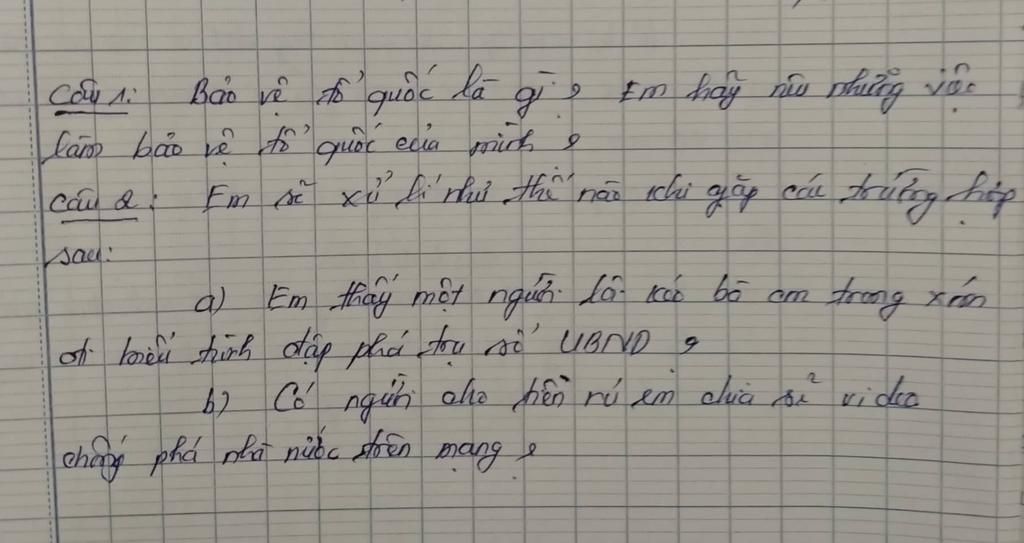 Câu 1: Bảo vệ tổ quốc là gì? Em hãy nêu những việc
làm bảo vệ tổ quốc của mình?
Câu 2: Em sẽ xử lí như thế nào khi gặp các trường hợp
sau:
a) Em thấy một người lạ kéo bà con trong xóm
đi biểu tình đập phá trụ sở UBND?
b) Có người cho tiền rủ em chia sẻ video
chống phá nhà nước trên mạng?